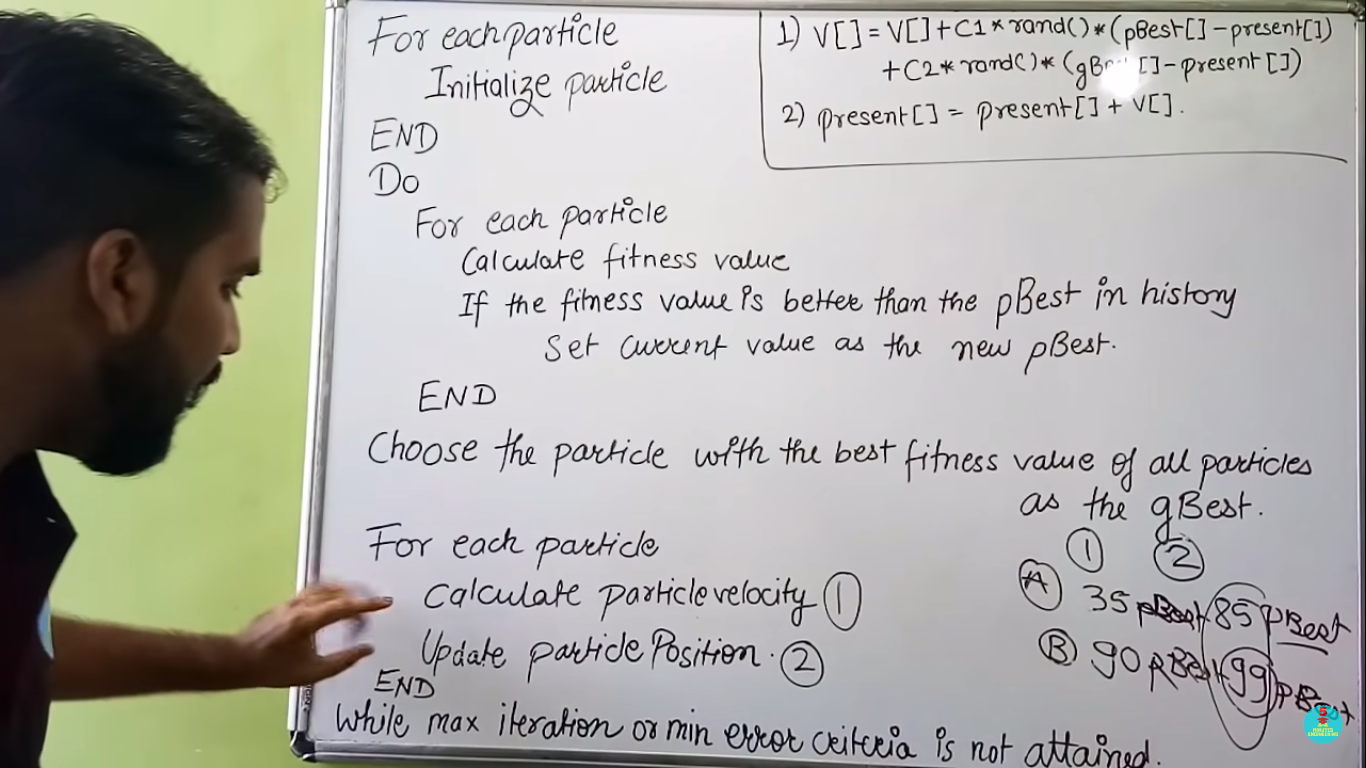 For each particle
Initialize particle
END
Do
For each particle
Calculate fitness value
If the fitness value is better than the pBest in history
Set current value as the new pBest.
END
Choose the particle with the best fitness value of all particles
as the gBest.
For each particle
Calculate particle velocity 1
Update particle Position. 2
END
While max iteration or min error criteria is not attained.
1) V[] = V[] + C1 * rand() * (pBest[] - present[])
+ C2 * rand() * ([] - present[])
2) present[] = present[] + V[].
1 2
A 35 pBest 85 pBest
B 90 pBest 99 pBest
5
MINUTES
ENGINEERING